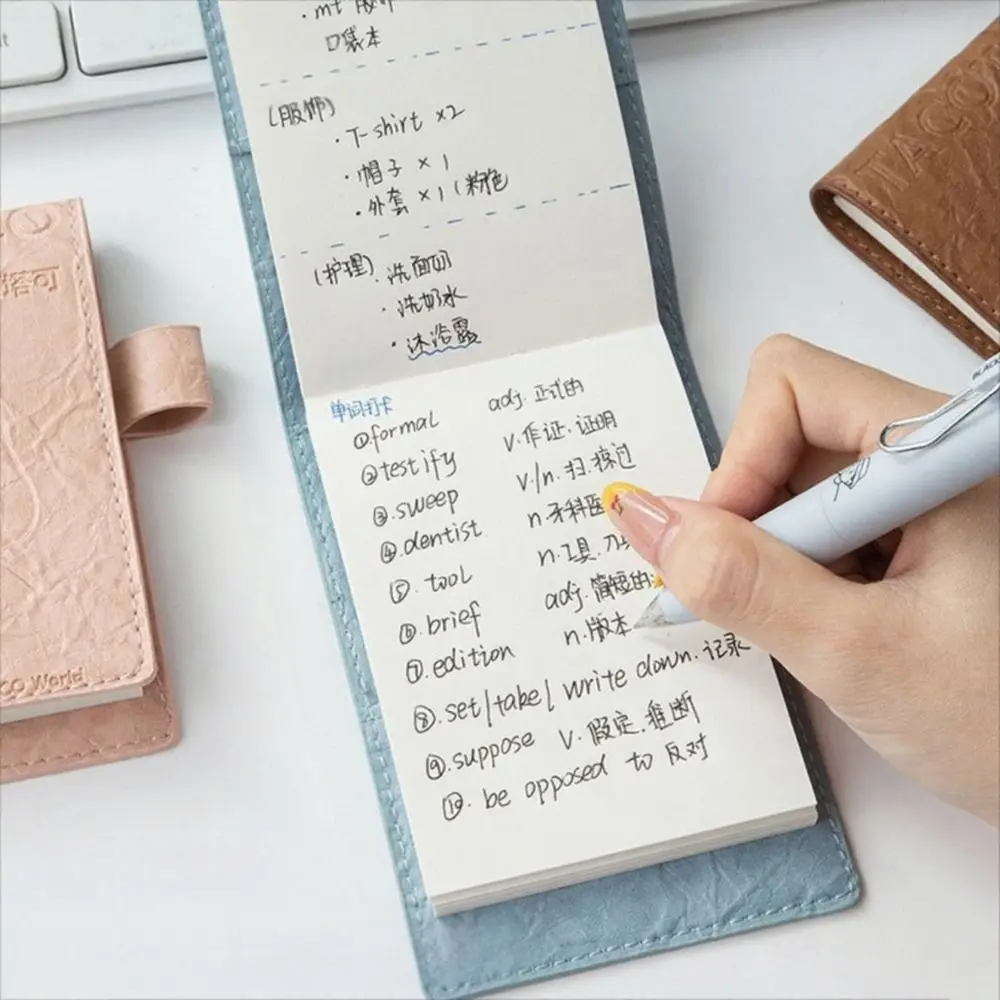 mt
口袋本
(服饰)
· T-shirt ×2
· 帽子 × 1
· 外套 ×1 (粉色
(护理) · 洗面奶
· 洗奶水
· 沐浴露
单词打卡
①.formal adj. 正式的
②testify v.作证.证明
③.sweep v./n. 扫.掠过
④.dentist n.牙科医
⑤. tool n.工具.刀
⑥.brief adj.简短的
⑦.edition n.版本
⑧.set/take/ write down.记录
⑨.suppose v. 假定.推断
⑩. be opposed to 反对
塔可
CO World
TACO
BLACK